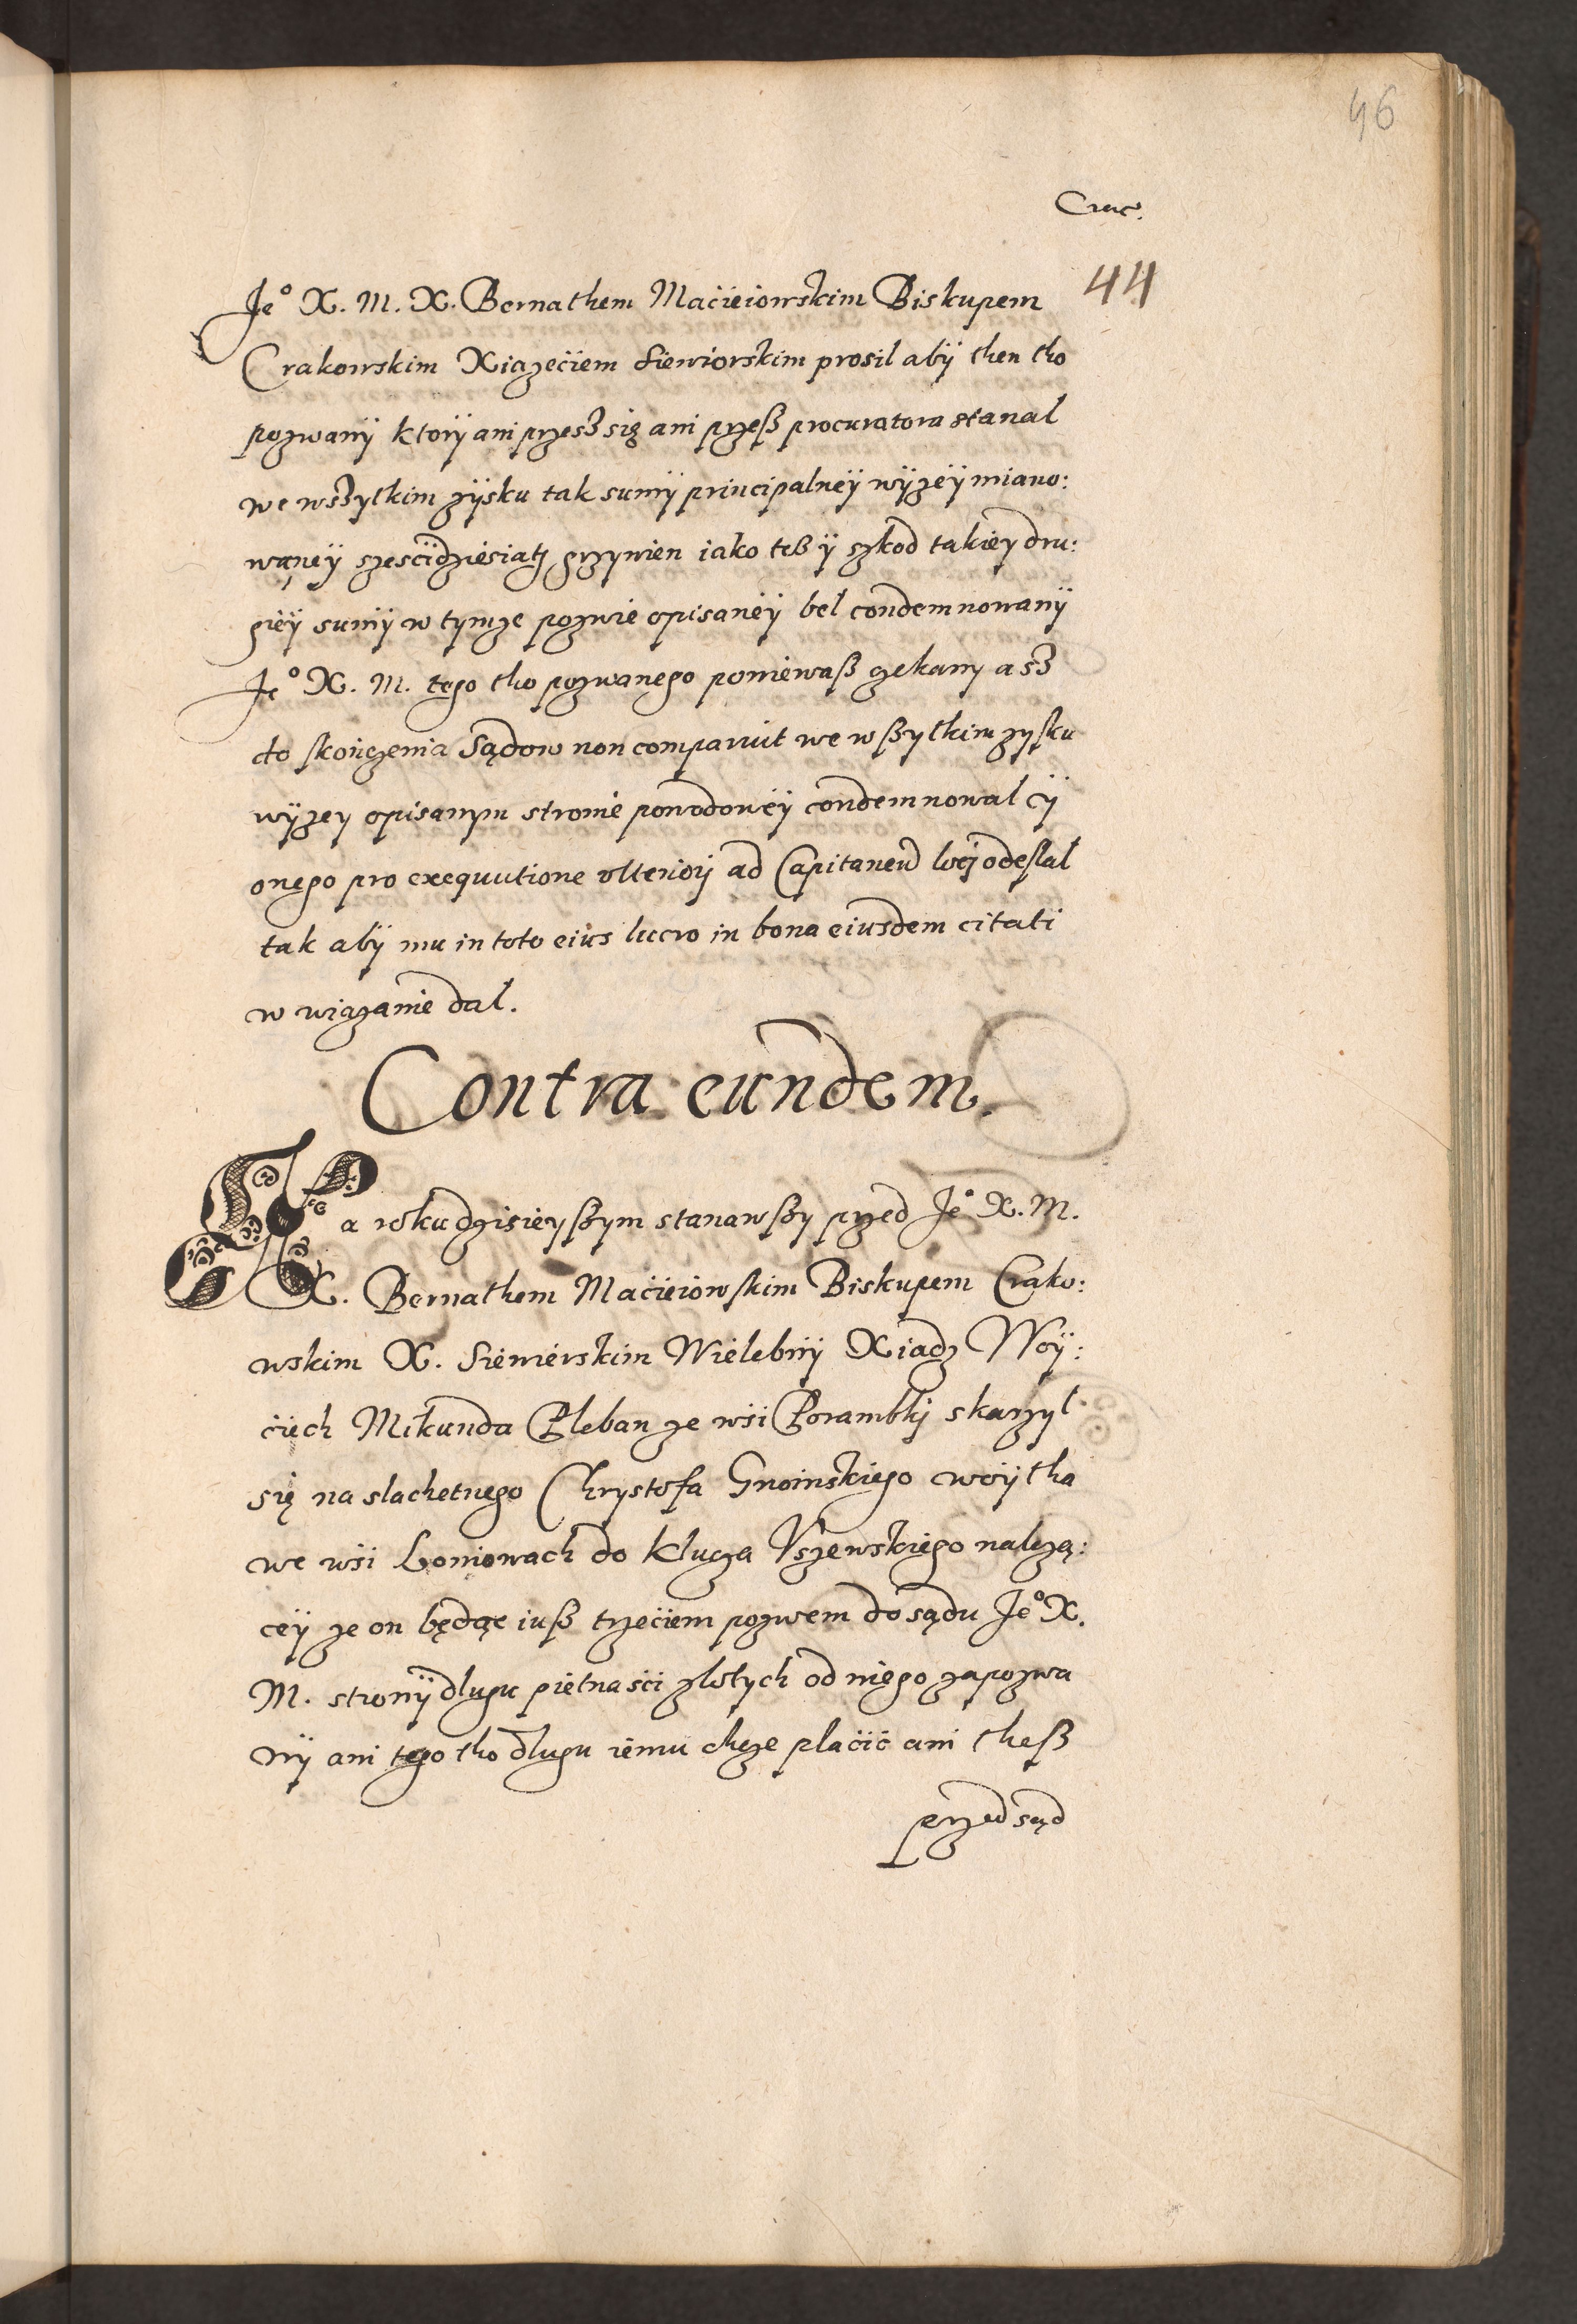 46
44
Je° X. M. X. Bernathem Maciieiowskim Biskupem
Crakowskim Xiązeciem Siewiorskim prosil abÿ then tho
pozwanÿ ktorÿ ani przesz się ani przeß procuratora stanal
we wszytkim zÿsku tak sumÿ principalneÿ wÿzeÿ miano:
waneÿ szescidziesiatz grzywien iako teß ÿ szkod takieÿ dru:
gieÿ sumÿ w tymze pozwie opisaneÿ bel condemnowanÿ
Je° X. M. tego tho pozwanego poniewaß czekany asz
do skończenia Sądow non comparuit we wßytkim zysku
wÿzey opisanym stronie powodoweÿ condemnowal ÿ
onego pro exequutione vlteriorj ad Capitaneu locj odeslal
tak abÿ mu in toto eius lucro in bona eiusdem citati
w wiązanie dal.
Contra eundem.
Na roku dzisieyßym stanawßy przed Je° X. M.
X. Bernathem Maciieiowskim Biskupem Crako:
wskim X. Siewierskim Wielebnÿ Xiadz Woÿ:
ciech Mikunda Pleban ze wsi Porambkj skarzyl
się na slachetnego Chrystofa Gnoinskiego woÿtha
we wsi Loniowach do klucza Vszewskiego nalezą:
ceÿ ze on będąc iuß trzeciem pozwem do sądu Je° X.
M. stronÿ dlugu piętnasci zlotych od niego zapozwa
nÿ ani tego tho dlugu iemu chcze placić ani theß
przed sąd